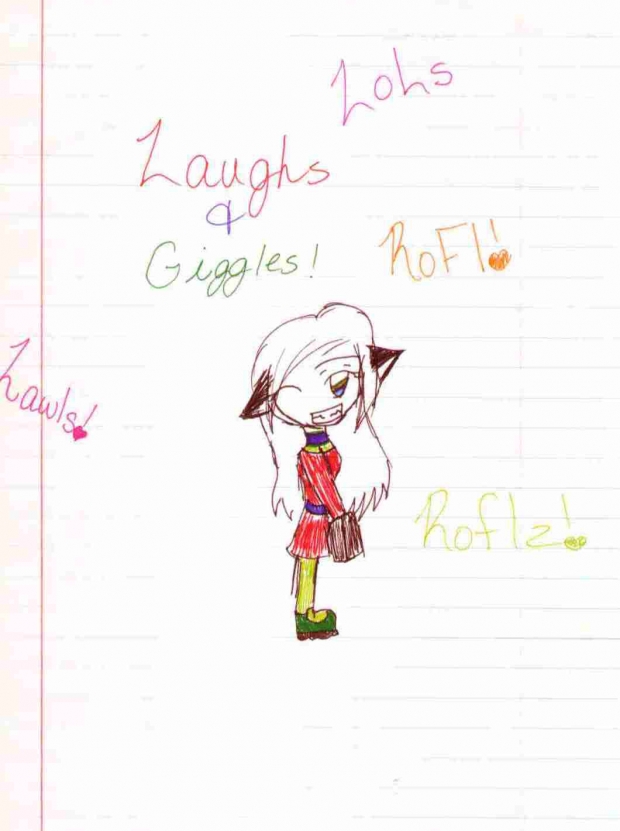 LoLs
Laughs
&
Giggles!
RoFl!
Lawls!
Roflz!